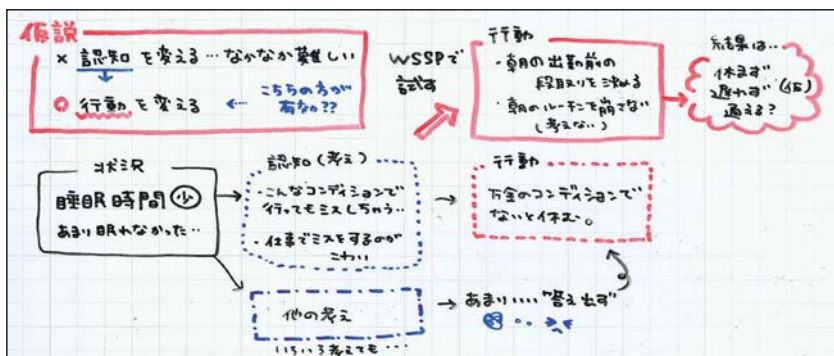 仮説
× 認知を変える…なかなか難しい
◎ 行動を変える
こちらの方が
有効??
WSSPで
試す
行動
・朝の出勤前の
段取りを決める
・朝のルーチンを崩さない
(考えない)
結果は..
休まず
遅れず(仮)
通える?
状況
睡眠時間 少
あまり眠れなかった…
認知(考え)
・こんなコンディションで
行ってもミスしちゃう…
・仕事でミスをするのが
こわい
行動
万全のコンディションで
ないと休む。
他の考え
いろいろ考えても…
あまりいい"答え出ず"